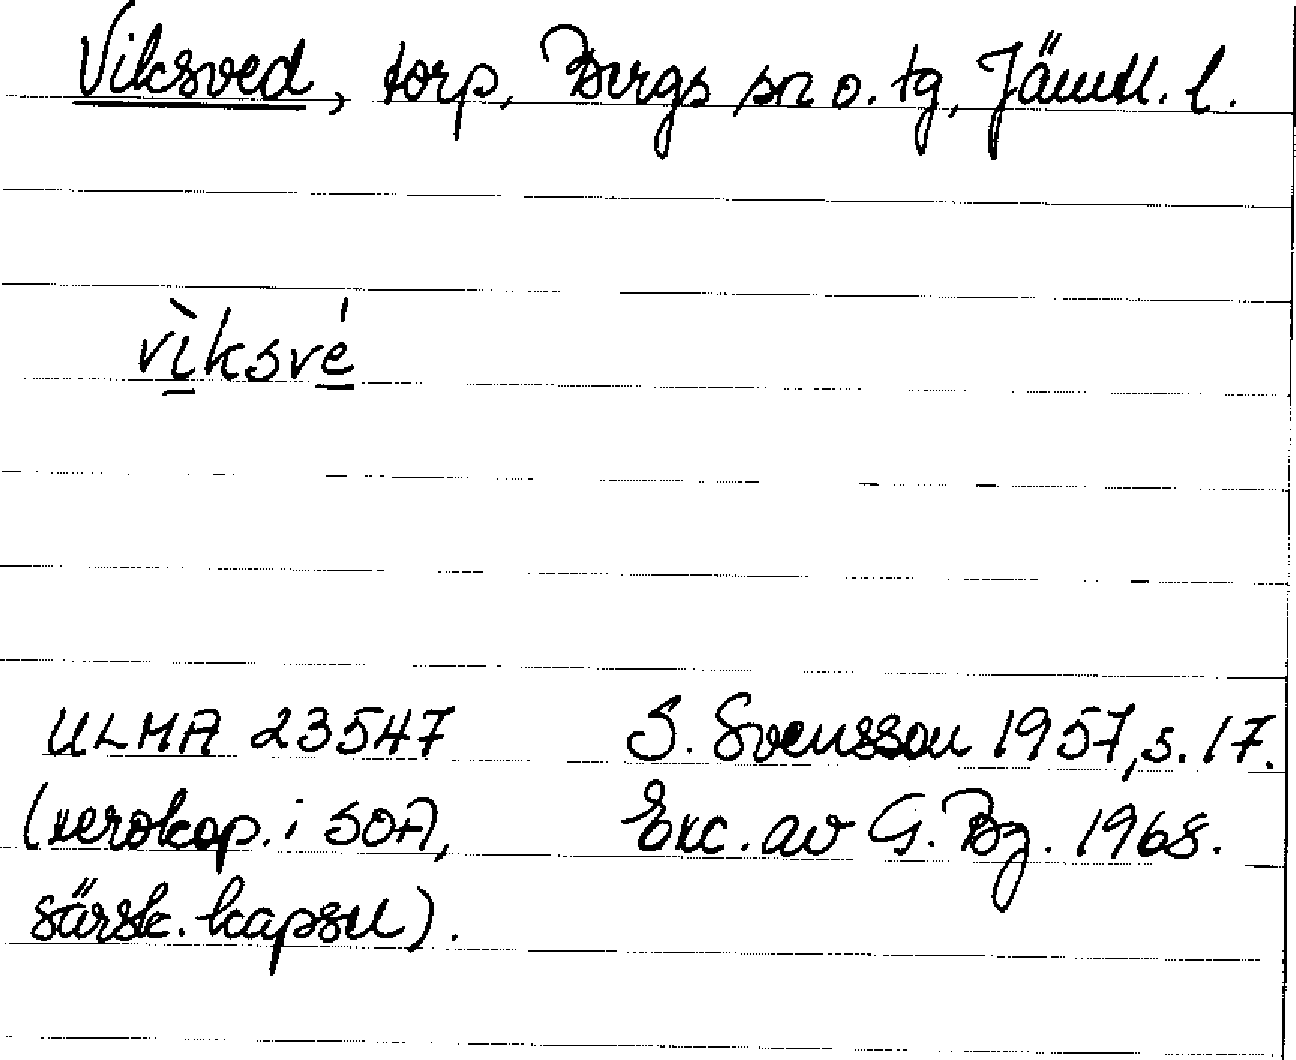 Viksved, torp, Bergs sn o. tg, Jämtl. l.
vìksvé
ULMA 23547
(xerokop. i SOA,
särsk. kapsel).
S. Svensson 1957, s. 17.
Exc. av G. Bg. 1968.